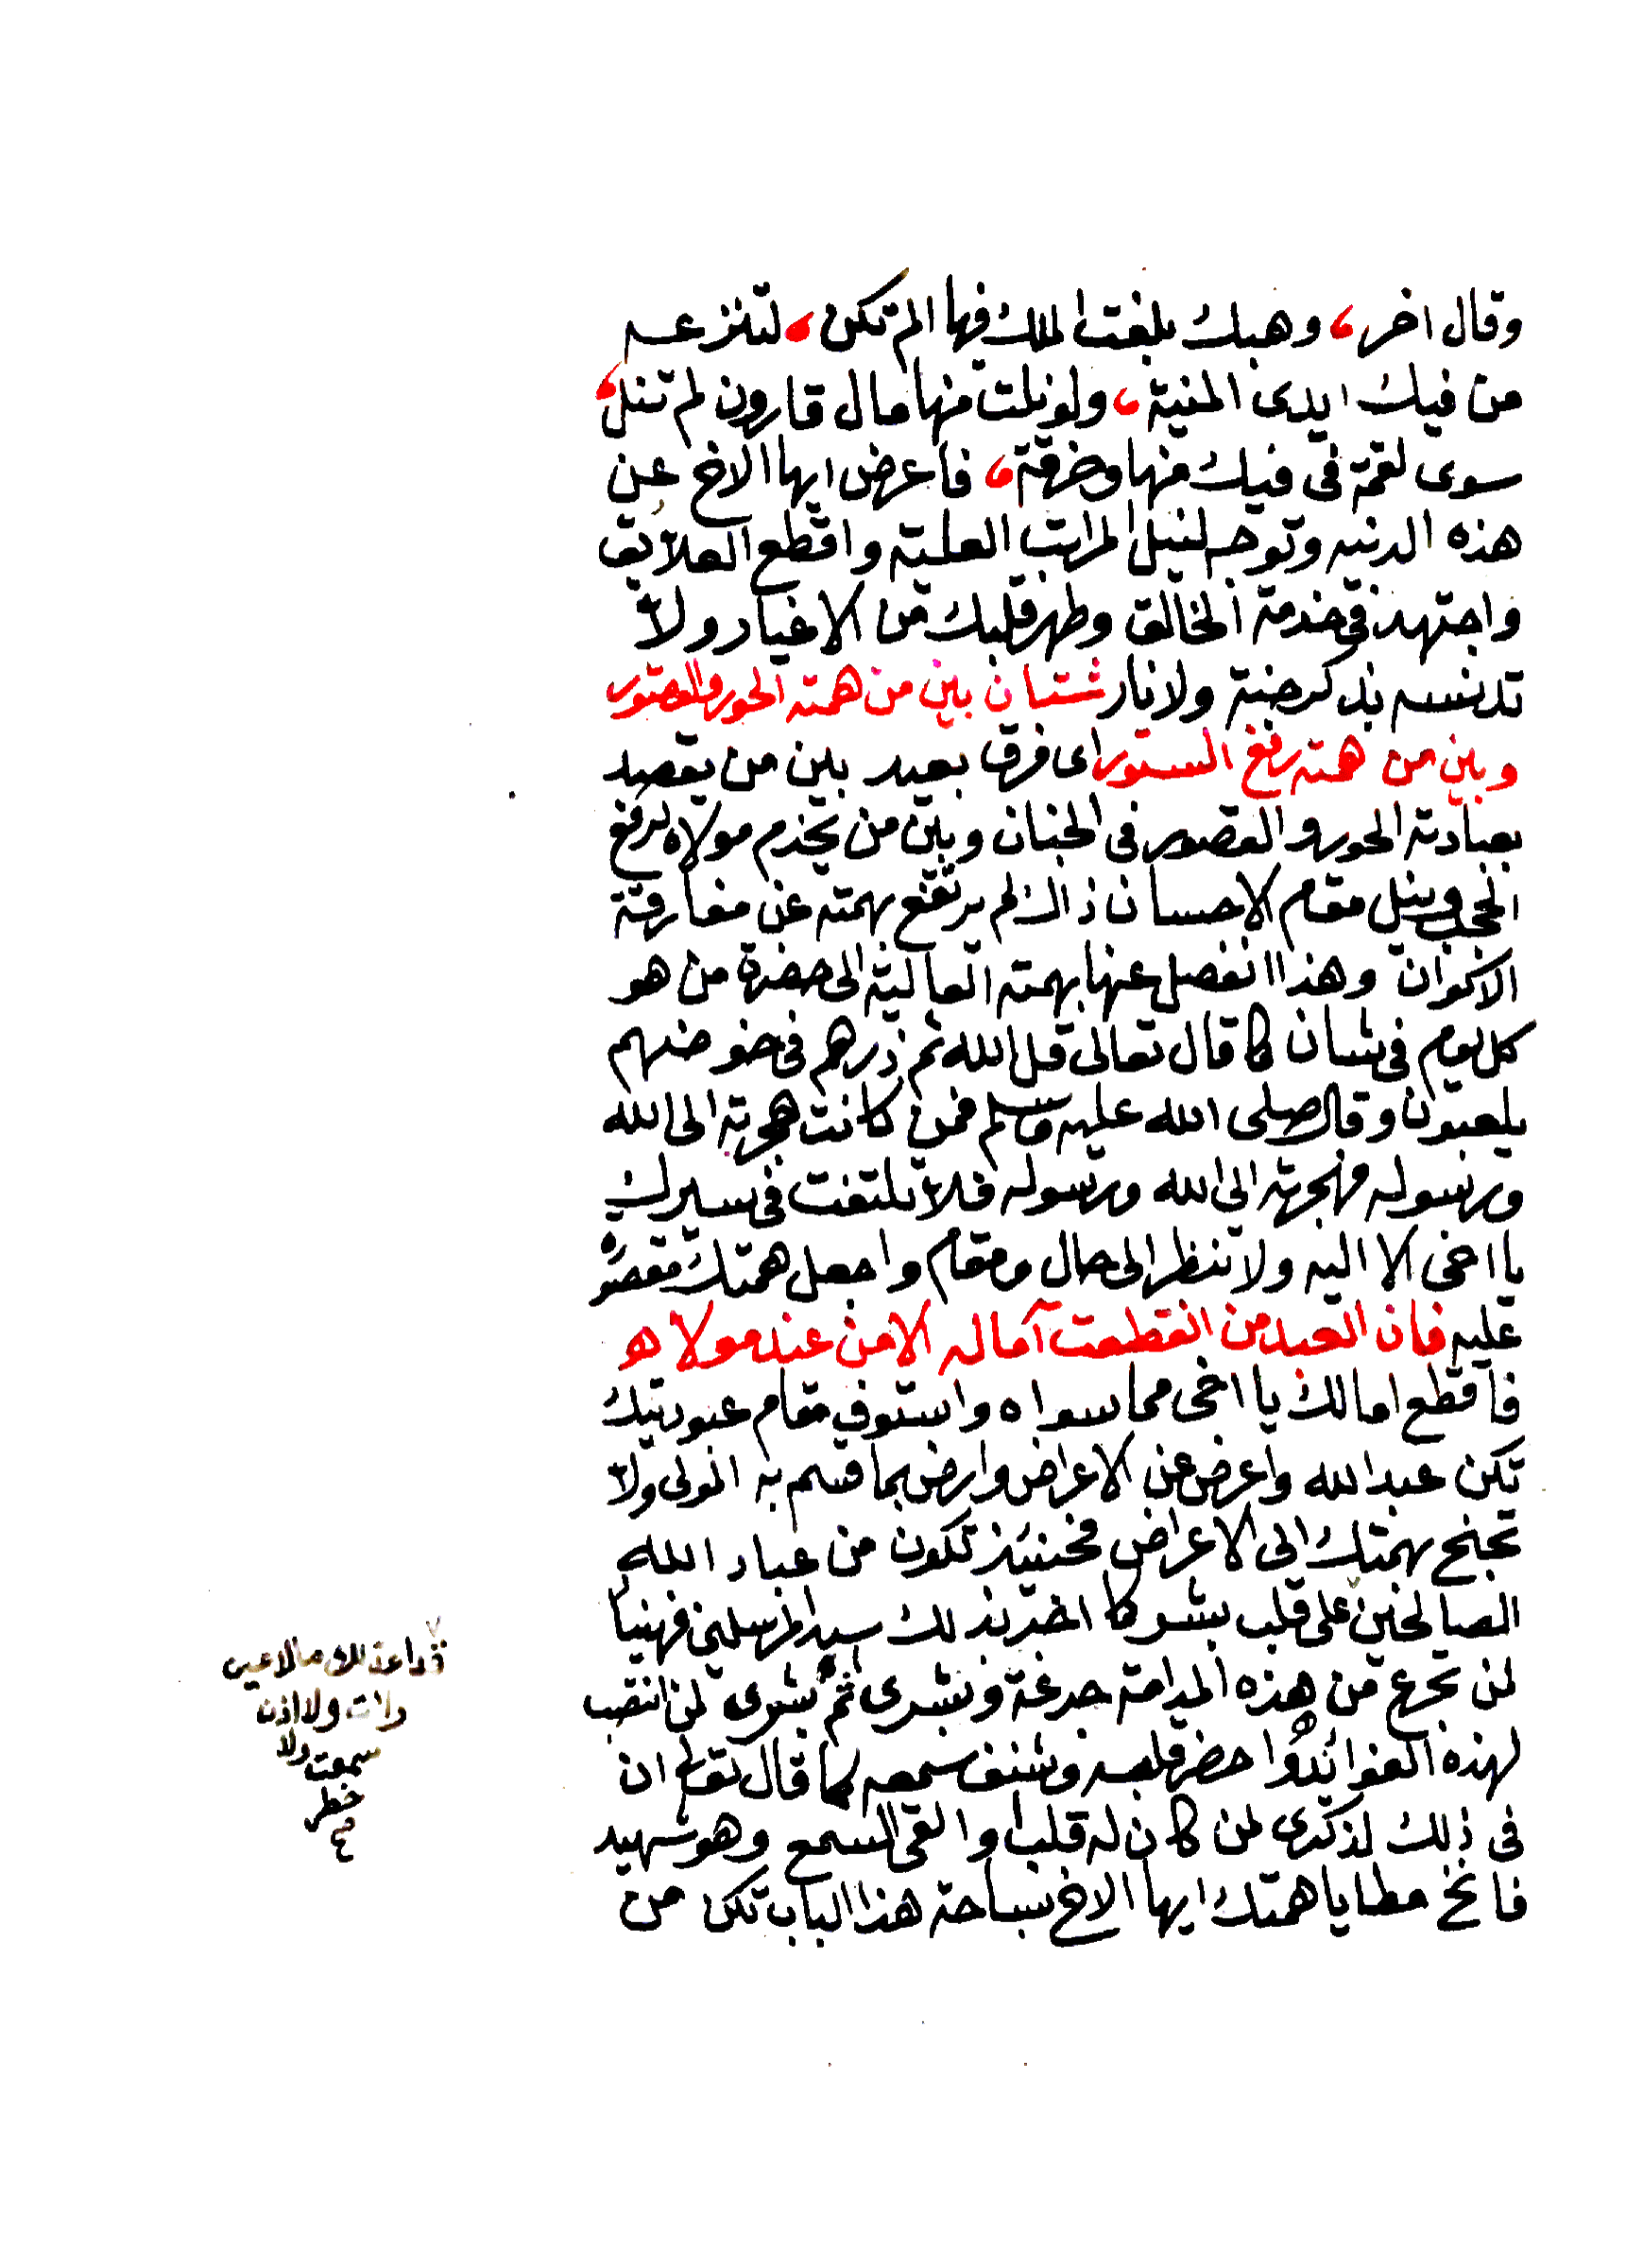 وقال اخر، وهبك بلغت الملك فيها الم تكن، لتنزعه
من فيك ايدى المنية، ولو نلت منها مال قارون لم تنل،
سوى لقمة فى فيك منها وخرقة، فاعرض ايها الاخ عن
هذه الدنيه وتوجه لنيل المراتب العلية واقطع العلايق
واجتهد فى خدمة الخالق وطهر قلبك من الاغيار ولا
تدنسه بذكر جنة ولا نار شتان بين من همته الحور والقصور
وبين من همته رفع الستور اى فرق بعيد بين من يقصد
بعبادته الحور والقصور فى الجنان وبين من يخدم مولاه لرفع
الحجب وينل مقام الاحسان ذاك لم يرتفع بهمته عن مفارقة
الاكوان وهذا انفصل عنها بهمته العالية الى حضرة من هو
كل يوم فى شان كما قال تعالى قل الله ثم ذرهم فى خوضهم
يلعبون وقال صلى الله عليه وسلم فمن كانت هجرته الى الله
ورسوله فهجرته الى الله ورسوله فلا تلتفت فى سيرك
يا اخى الا اليه ولا تنظر الى حال ومقام واجعل همتك مقصوره
عليه فان العبد من انقطعت آماله الا من عند مولاه
فاقطع امالك يا اخى مما سواه واستوف مقام عبوديتك
تكن عبدالله واعرض عن الاعراض وارض بما قسم به المولى ولا
تجنح بهمتك الى الاعراض فحينئذ تكون من عباد الله
الصالحين على قلب بشر كما اخبر بذلك سيد المرسلين فهنيا
لمن تجرع من هذه المدامة جرعة وبشرى ثم بشرى لمن انتصب
لهذه الفوائد واحضر قلبه وشنف سمعه كما قال تعالى ان
فى ذلك لذكرى لمن كان له قلب او القى السمع وهو شهيد
فانخ مطايا همتك ايها الاخ بساحة هذا الباب تكن من
قد اعد لك مالا عين
رات ولا اذن
سمعت ولا
خطر
صح